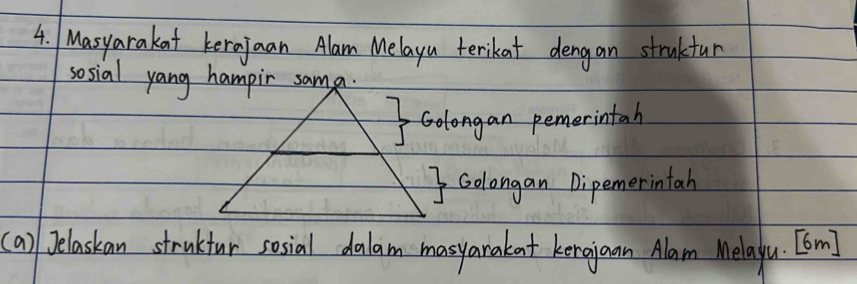 4. Masyarakat kerajaan Alam Melayu terikat dengan struktur
sosial yang hampir sama.
} Golongan pemerintah
} Golongan Dipemerintah
(a) Jelaskan struktur sosial dalam masyarakat kerajaan Alam Melayu. [6m]